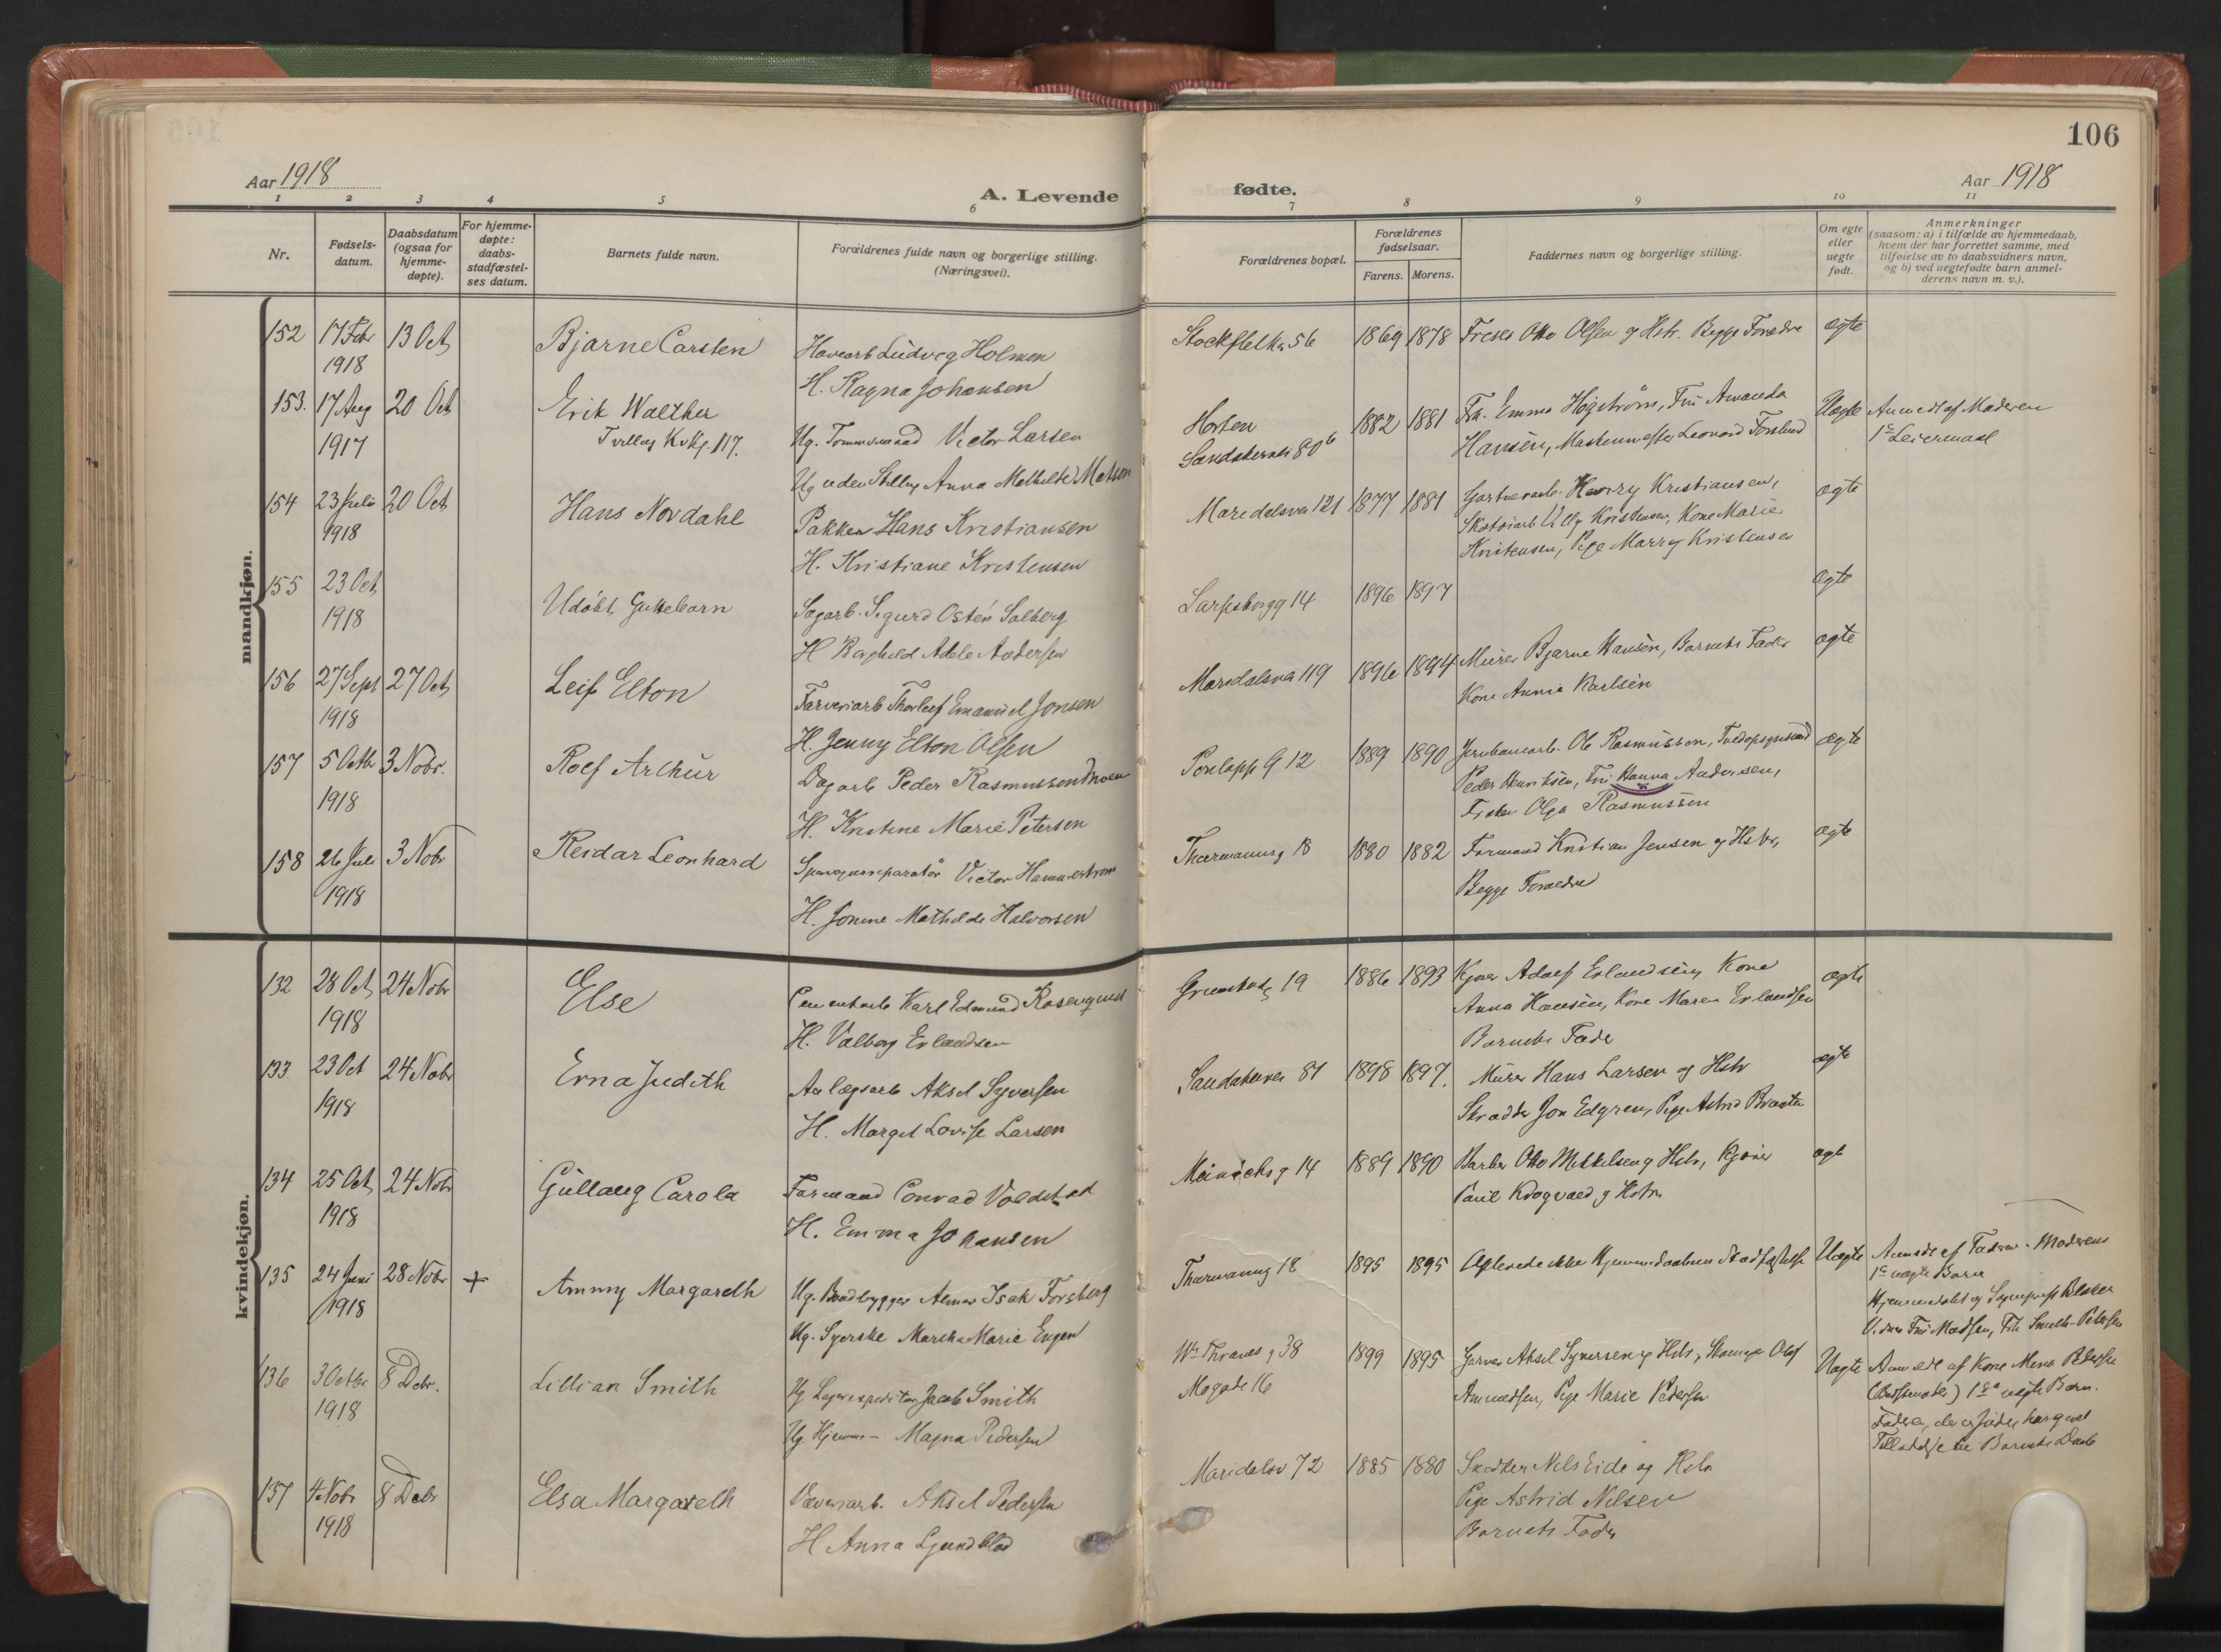 106
Aar 1918
A. Levende
fødte.
Aar 1918
1 2 3 4 5 6 7 8 9 10 11
Nr.
Fødsels-
datum.
Daabsdatum
(ogsaa for
hjemme-
døpte).
For hjemme-
døpte:
daabs-
stadfæstel-
ses datum.
Barnets fulde navn.
Forældrenes fulde navn og borgerlige stilling.
(Næringsvei).
Forældrenes bopæl.
Forældrenes
fødselsaar.
Farens. Morens.
Faddernes navn og borgerlige stilling.
Om egte
eller
uegte
født.
Anmerkninger
(saasom: a) i tilfælde av hjemmedaab,
hvem der har forrettet samme, med
tilføielse av to daabsvidners navn,
og b) ved uegtefødte barn anmel-
derens navn m. v.).
mandkjøn.
152 17 Febr 13 Oct Bjarne Carsten Havearb Ludvig Holmen 56 1869 1878 Otto Olsen og Hstr. Begge Forædre ægte
1918 H. Ragna Johansen
153. 17 Aug 20 Oct Erik Walther Ug. Tømmermand Victor Larsen Horten 1882 1881 Frk. Emma Högström, Fru Amanda Uægte Anmeldt af Moderen
1917 Tvilling Kvkj. 117. Ug uden Stilling Anna Mathilde Matson Sandakerveien 80 b Hansen, Leonard Forslund 1ste Leiermaal
154 23 Juli 20 Oct Hans Nordahl Pakker Hans Kristiansen Maridalsvei 121 1877 1881 Harry Kristiansen, ægte
1918 H. Kristiane Kristensen Willy Kristensen, Kone Marie
Kristensen, Pige Marry Kristensen
155 23 Oct Udøbt Guttebarn Sagarb. Sigurd Osten Solberg Sarpsborgg 14 1896 1897 ægte
1918 H Borghild Adele Andersen
156 27 Sept 27 Oct Leif Elton Farveriarb Thorleif Emanuel Jonsen Maridalsvei 119 1896 1894 Murer Bjarne Hansen, Barnets Fader ægte
1918 H. Jenny Elton Olsen Kone Annie Karlsen
157 5 Octbr 3 Nobr. Rolf Arthur Dagarb Peder Rasmussen 12 1889 1890 Jernbanearb. Ole Rasmussen, ægte
1918 H. Kristine Marie Petersen Peder Henriksen, Fru Hanna Andersen,
Frøken Olga Rasmussen
158 26 Juli 3 Nobr Reidar Leonhard Victor Hammerstrøm Thurmannsg 18 1880 1882 Formand Kristian Jensen og Hstr, ægte
1918 H. Jonine Mathilde Halvorsen Begge Forældre
kvindekjøn.
132 28 Oct 24 Nobr Else Cementarb Karl Edmund Rosenquist 19 1886 1893 Kjører Adolf Erlandsen, Kone ægte
1918 H. Valborg Erlandsen Anna Hansen, Kone Maren Erlandsen
Barnets Fader
133. 23 Oct 24 Nobr Erna Judith Anlægsarb Aksel Syversen Sandakervei 81 1898 1897. Murer Hans Larsen og Hstr ægte
1918 H. Margit Lovise Larsen Skrædder Jon Edgren, Pige Astrid
134 25 Oct 24 Nobr Gullaug Carola Formand Conrad Voldstad g 14 1889 1890 Barber Otto Mikkelsen og Hstr, Kjører ægt
1918 H. Emma Johansen Paul Krogvold og Hstr.
135 24 Juni 28 Nobr + Ammy Margareth Ug. Isak Forsberg Thurmannsg 18 1895 1895 Oplevede ikke Hjemmedaabens Stadfæstelse Uægte Anmeldt af Faderen. Moderens
1918 Ug. Syerske Martha Marie Engen 1ste uægte Barn
Hjemmedøbt
Vidner Fru Madsen, Frk Petersen
136 3 Octbr 8 Debr. Lillian Smith Ug Lagerexpeditør Jacob Smith Wm Thranes g 38 1899 1895 Garver Aksel Syversen og Hstr, Olaf Uægte Anmeldt af Kone Pedersen
1918 Ug. Hjemme- Magna Pedersen 16 Amundsen, Pige Marie Pedersen (Bedstemoder) 1ste uægte Barn.
Faderen,
Tilladelse til Barnets Daab
137 4 Nobr 8 Debr Elsa Margareth Væveriarb. Aksel Pedersen Maridalsv 72 1885 1880 Snedker Nils Eide og Hstr
1918 H Anna Ljundblad Pige Astrid Nilsen
Barnets Fader